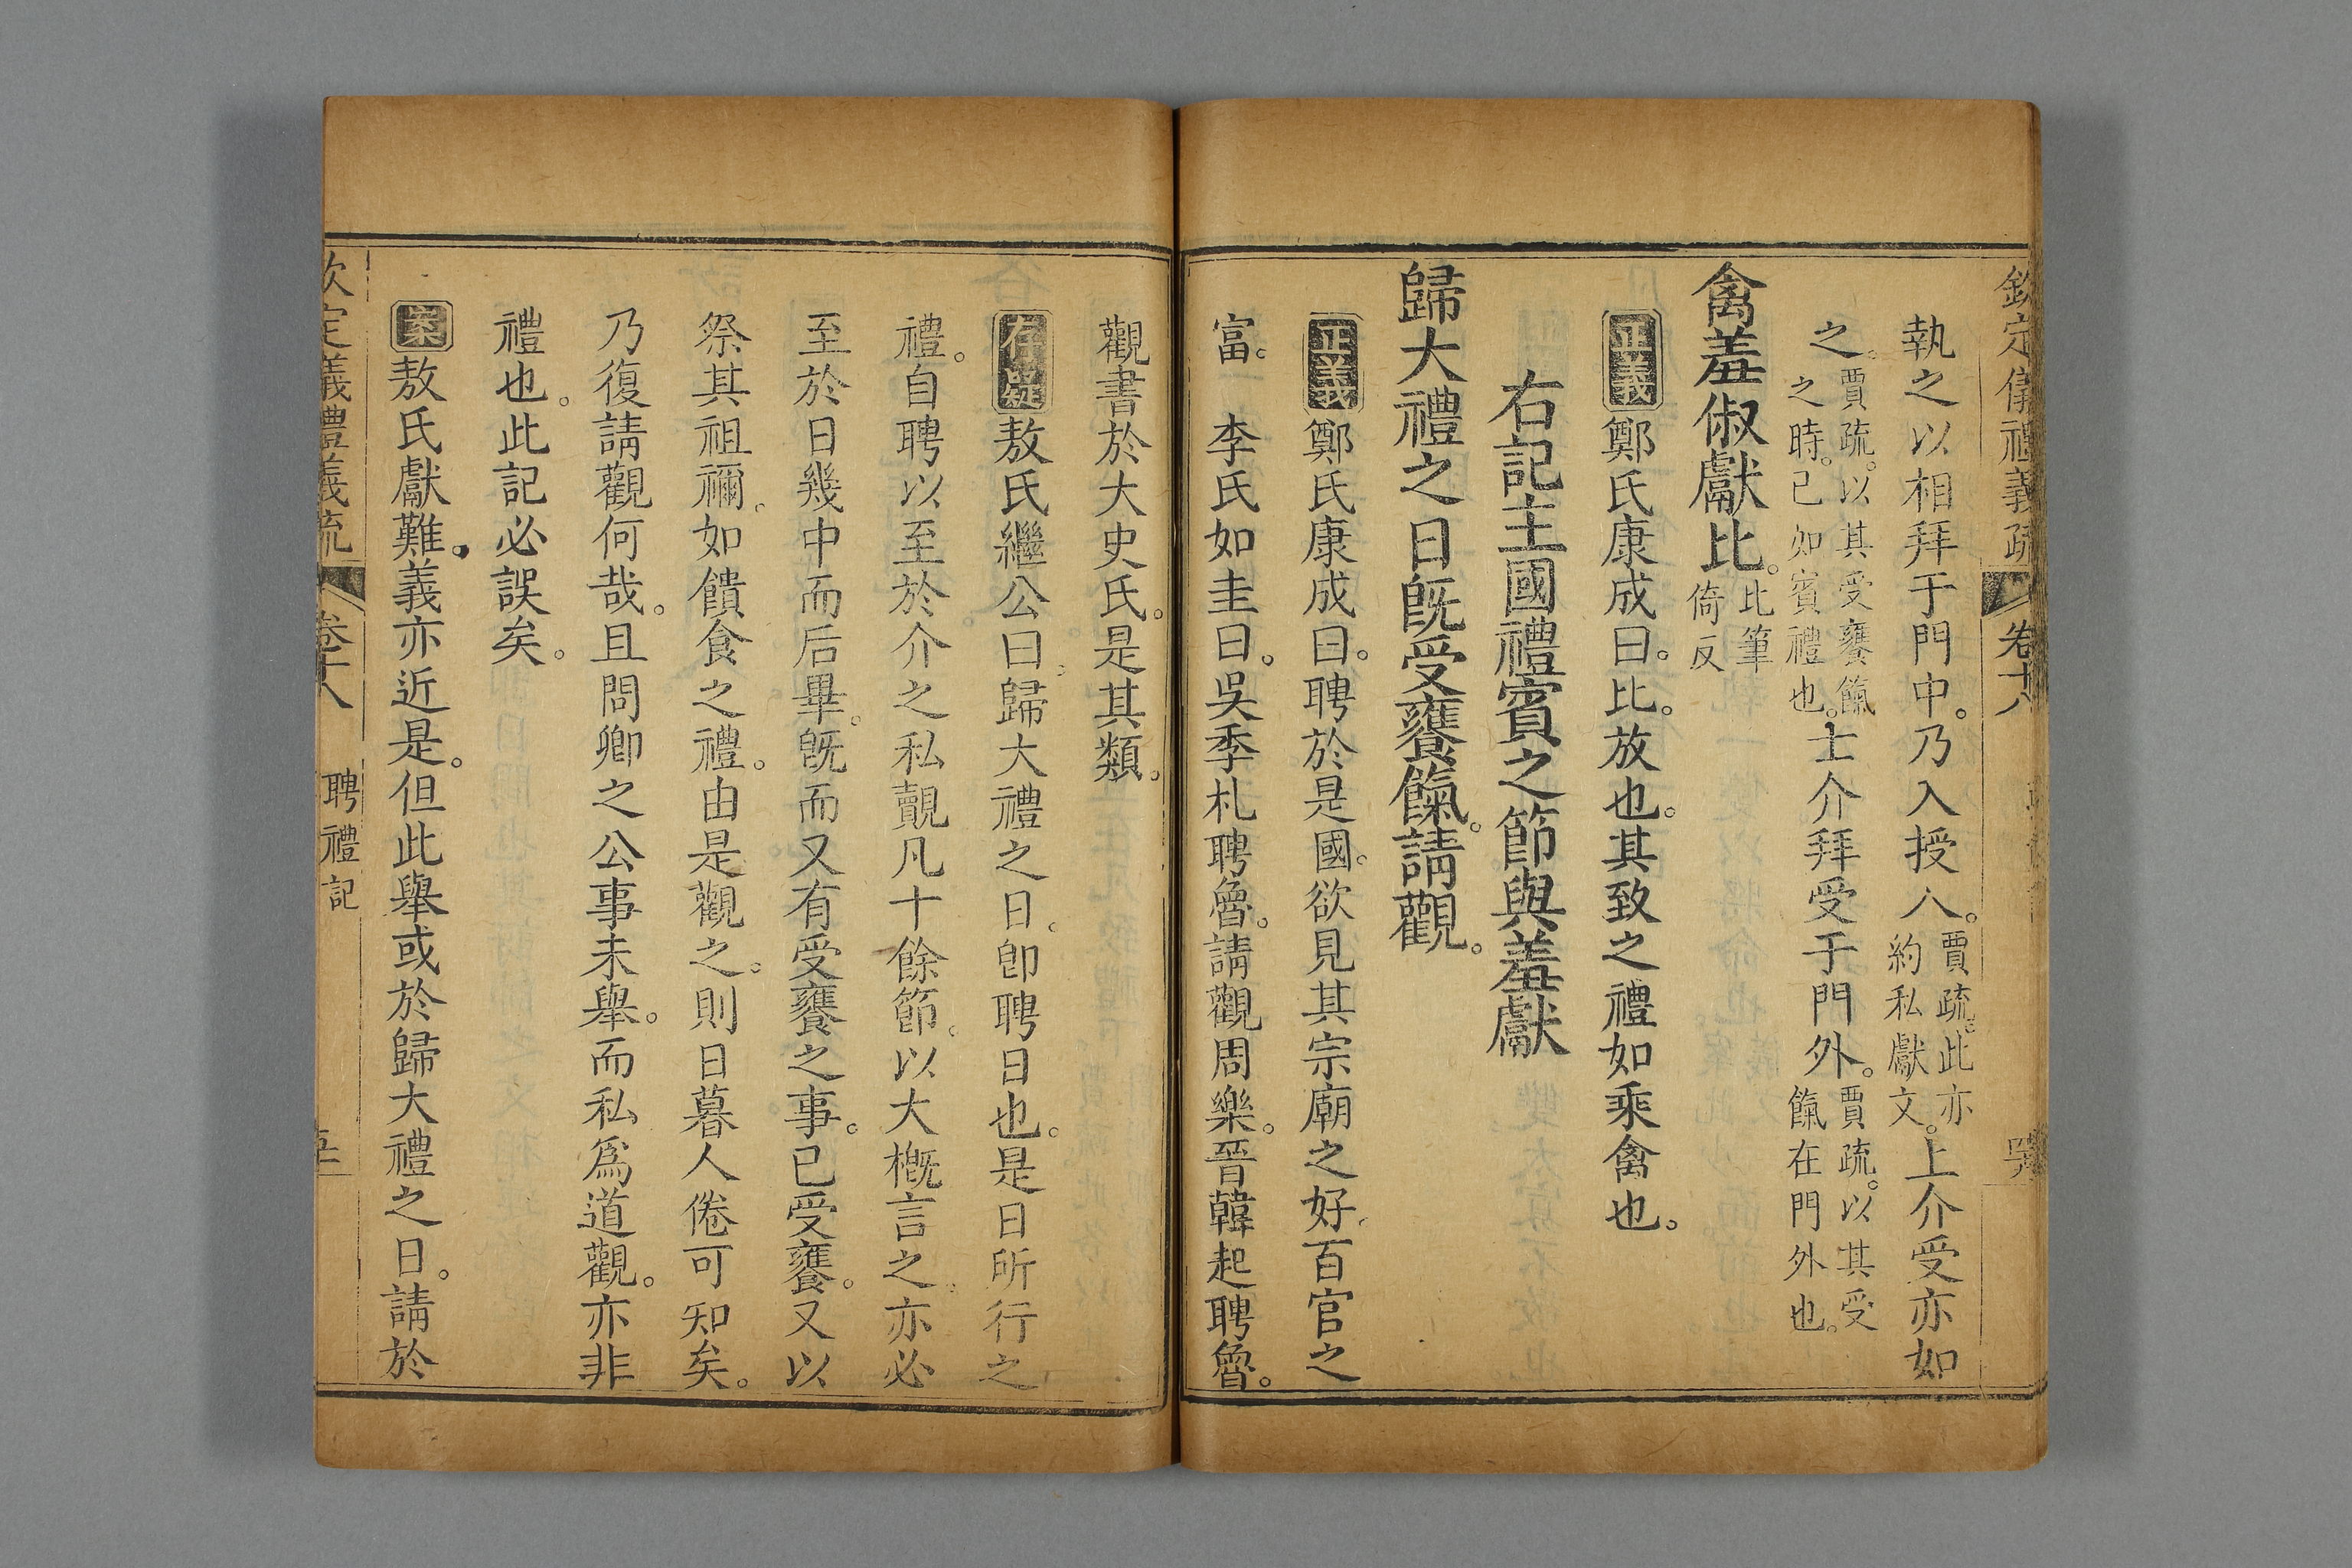 欽定儀禮義疏 卷十八
執之以相拜于門中。乃入授人。賈疏。此亦約私獻文。上介受亦如
之。賈疏。以其受饔餼之時。已如賓禮也。士介拜受于門外。賈疏。以其受餼在門外也。
禽羞俶獻比。比筆倚反
正義鄭氏康成曰。比。放也。其致之禮如乘禽也。
右記主國禮賓之節與羞獻
歸大禮之日旣受饔餼。請觀。
正義鄭氏康成曰。聘於是國。欲見其宗廟之好。百官之
富。 李氏如圭曰。吳季札聘魯。請觀周樂。晉韓起聘魯。
觀書於大史氏。是其類。
存疑敖氏繼公曰。歸大禮之日。卽聘日也。是日所行之
禮。自聘以至於介之私覿。凡十餘節。以大槪言之。亦必
至於日幾中而后畢。旣而又有受饔之事。已受饔。又以
祭其祖禰。如饋食之禮。由是觀之。則日暮人倦可知矣。
乃復請觀何哉。且問卿之公事未舉。而私爲道觀。亦非
禮也。此記必誤矣。
案敖氏獻難。義亦近是。但此舉或於歸大禮之日。請於
欽定義禮義疏 卷十八 聘禮記